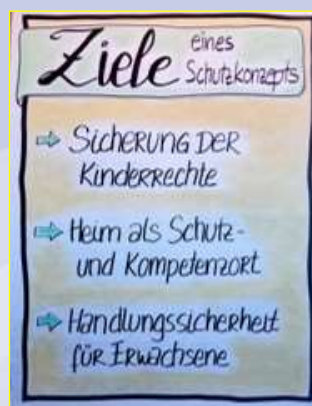 Ziele eines
Schutzkonzepts
Sicherung der
Kinderrechte
Heim als Schutz-
und Kompetenzort
Handlungssicherheit
für Erwachsene